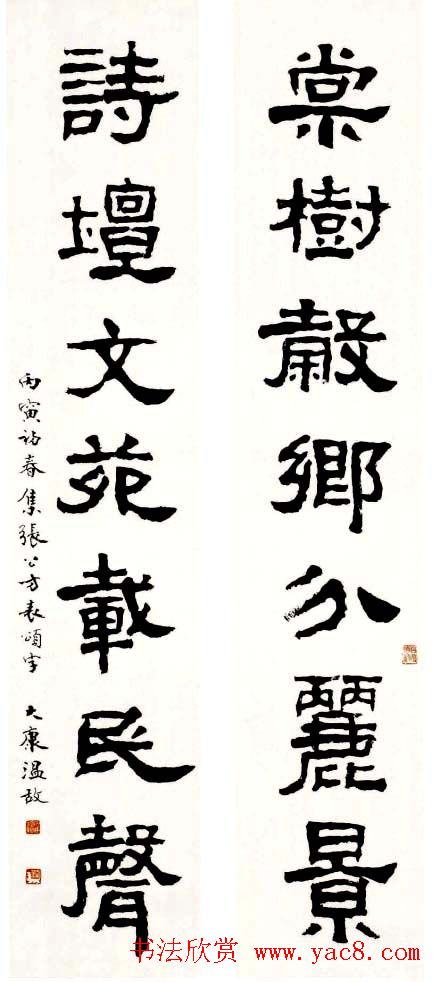 棠樹穀鄉分麗景
詩壇文苑載民聲
丙寅初春集張公方表頌字 大康溫故
书法欣赏 www.yac8.com